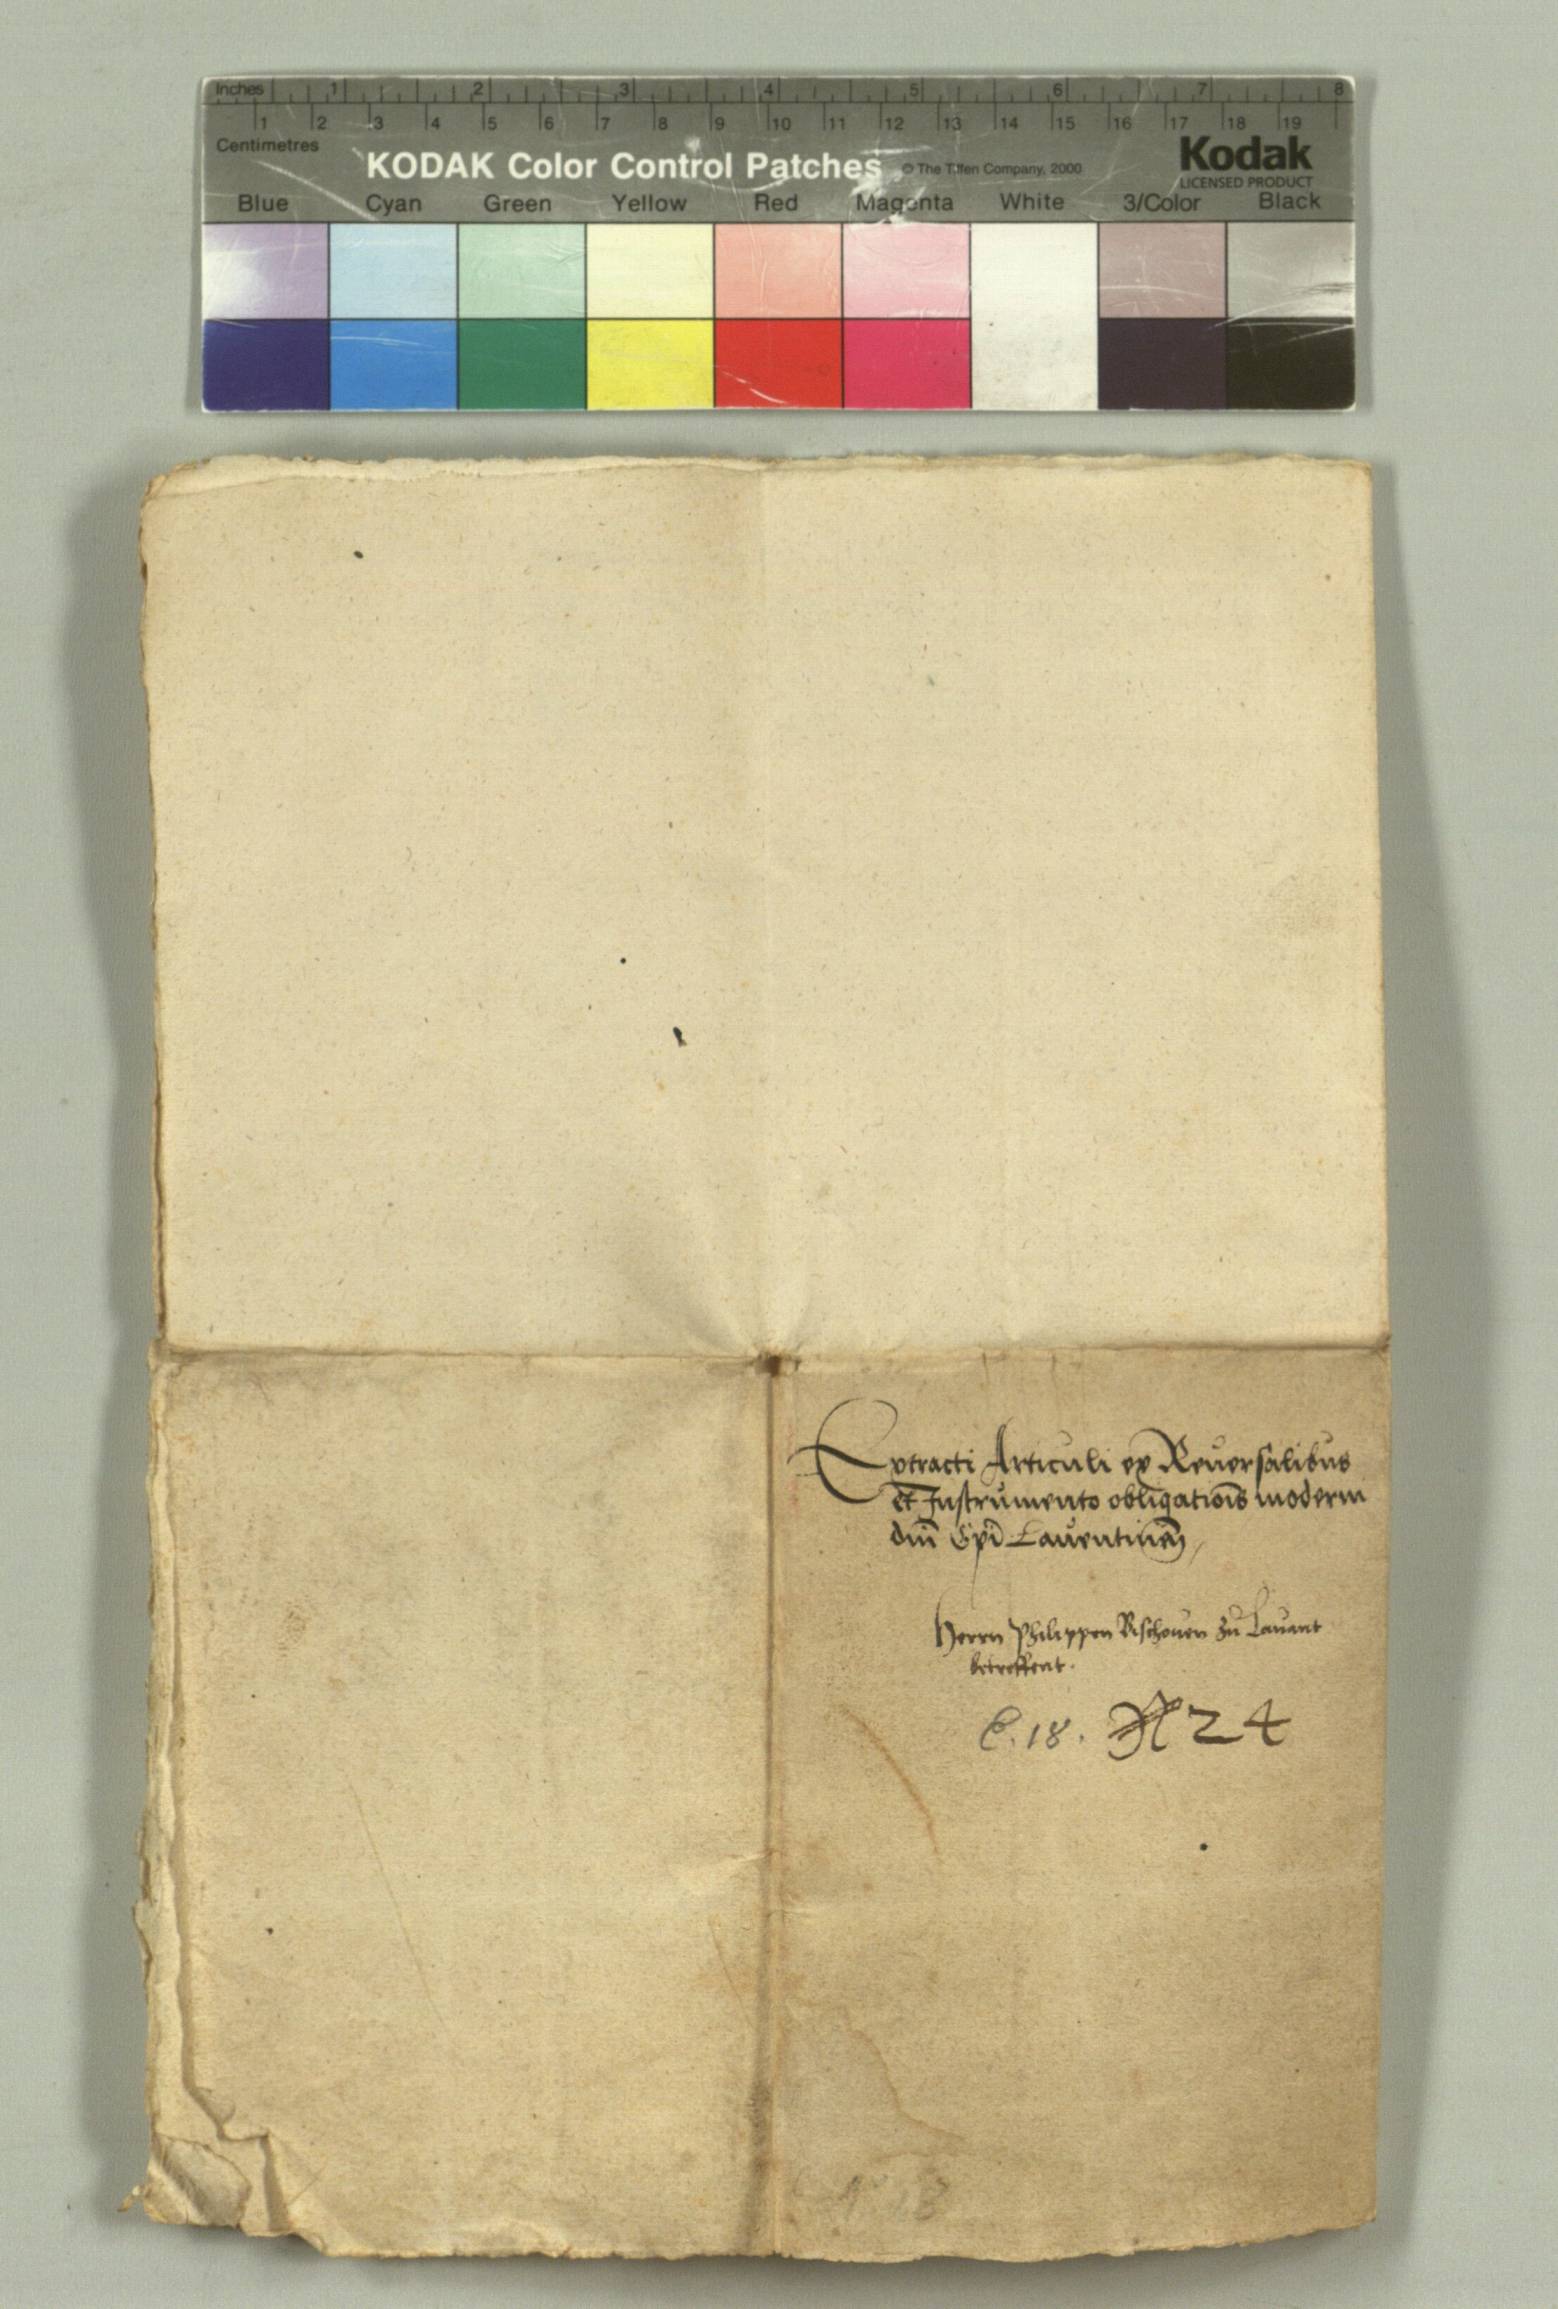 Inches 1 2 3 4 5 6 7 8
1 2 3 4 5 6 7 8 9 10 11 12 13 14 15 16 17 18 19
Centimetres
KODAK Color Control Patches © The Tiffen Company, 2000 Kodak
LICENSED PRODUCT
Blue Cyan Green Yellow Red Magenta White 3/Color Black
Extracti Articuli ex Reuersalibus
et Instrumento obligatiōis moderni
dni Epi Lauentinen̄
Herrn Philippen Bischouen zu Lauant
betreffent.
C. 18. 24